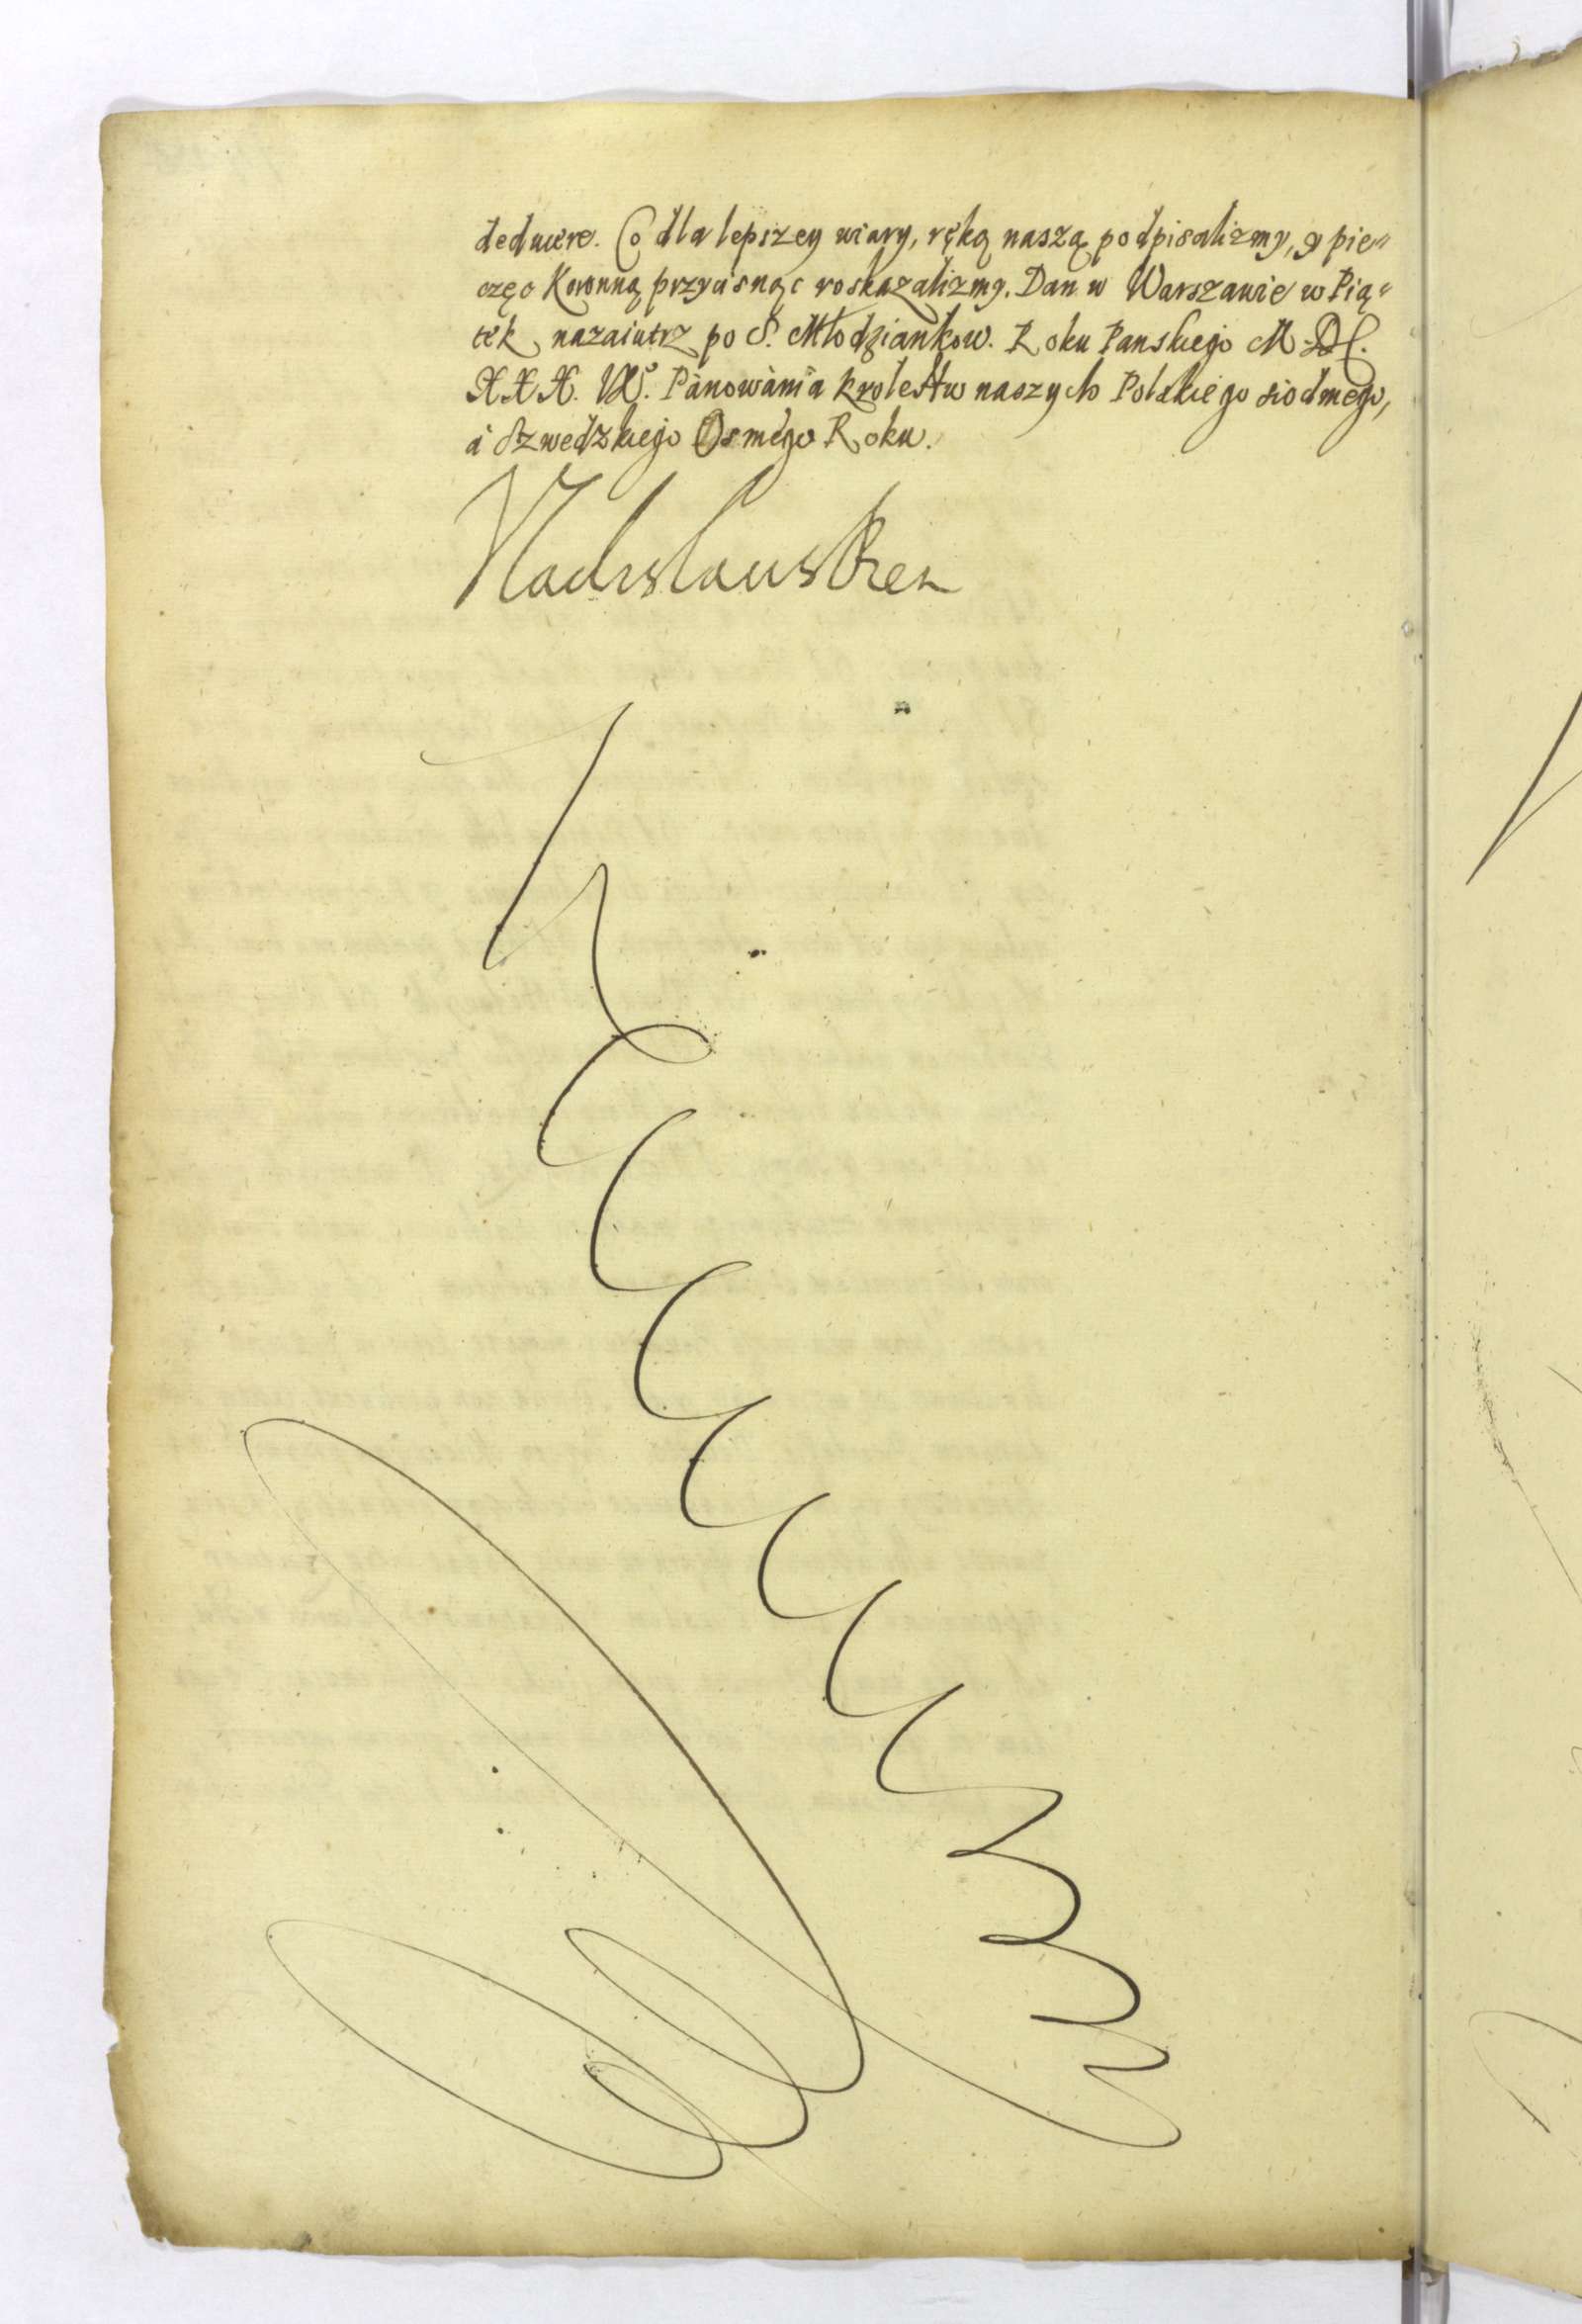 deducere. Co dla lepszey wiary, ręką naszą podpisalizmy, y pie„
częc Koronną przycisnąc roskazalizmy. Dan w Warszawie w Pią„
tek nazaiutrz po S. Młodziankow. Roku Panskiego M.DC.
XXX. IX°. Pànowània Krolestw naszych Polskiego siodmego,
à Szwedzkiego Osmego Roku.
Vladislaus Rex